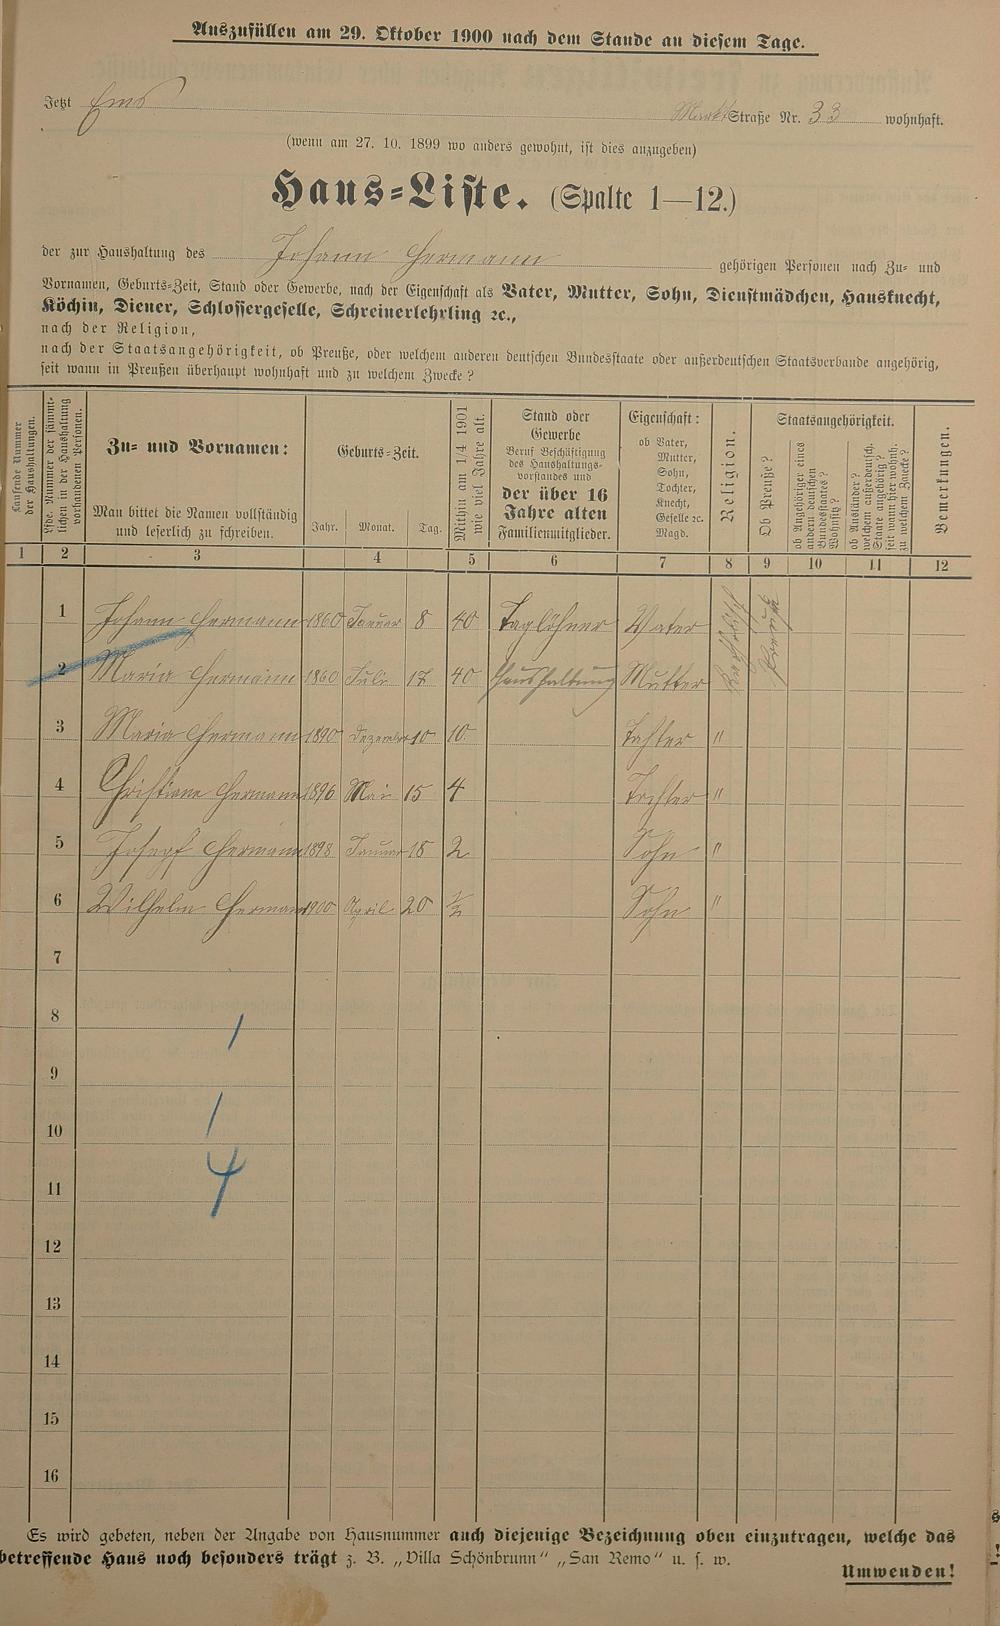 Auszufüllen am 29. Oktober 1900 nach dem Stande an diesem Tage.
Jetzt Ems Markt Straße Nr. 33 wohnhaft.
(wenn am 27. 10. 1899 wo anders gewohnt, ist dies anzugeben)
Haus-Liste. (Spalte 1—12.)
der zur Haushaltung des Johann Hermann gehörigen Personen nach Zu- und
Vornamen, Geburts-Zeit, Stand oder Gewerbe, nach der Eigenschaft als Vater, Mutter, Sohn, Dienstmädchen, Hausknecht,
Köchin, Diener, Schlossergeselle, Schreinerlehrling ec.,
nach der Religion,
nach der Staatsangehörigkeit, ob Preuße, oder welchem anderen deutschen Bundesstaate oder außerdeutschen Staatsverbande angehörig,
seit wann in Preußen überhaupt wohnhaft und zu welchem Zwecke?
Laufende Nummer
der Haushaltungen.
Lfde. Nummer der sämmt-
lichen in der Haushaltung
vorhandenen Personen.
Zu- und Vornamen:
Man bittet die Namen vollständig
und leserlich zu schreiben.
Geburts-Zeit.
Jahr. Monat. Tag.
Mithin am 1/4 1901
wie viel Jahre alt.
Stand oder
Gewerbe
Beruf Beschäftigung
des Haushaltungs-
vorstandes und
der über 16
Jahre alten
Familienmitglieder.
Eigenschaft:
ob Vater,
Mutter,
Sohn,
Tochter,
Knecht,
Geselle ec.
Magd.
Religion.
Staatsangehörigkeit.
Ob Preuße?
ob Angehöriger eines
andern deutschen
Bundesstaates?
Wohnsitz?
ob Ausländer?
welchem außerdeutsch.
Staate angehörig?
seit wann hier wohnh.
zu welchem Zwecke?
Bemerkungen.
1 2 3 4 5 6 7 8 9 10 11 12
1 Johann Hermann 1860 Januar 8 40 Taglöhner Vater Katholisch Preuße
2 Maria Hermann 1860 Juli 17 40 Haushaltung Mutter
3 Maria Hermann 1890 Dezember 10 10 Tochter "
4 Christiane Hermann 1896 Mai 15 4 Tochter "
5 Josepf Hermann 1898 Januar 18 2 Sohn "
6 Wilhelm Hermann 1900 April 20 ½ Sohn "
7
8
1
9
10
1
11
4
12
13
14
15
16
Es wird gebeten, neben der Angabe von Hausnummer auch diejenige Bezeichnung oben einzutragen, welche das
betreffende Haus noch besonders trägt z. B. „Villa Schönbrunn“ „San Remo“ u. s. w.
Umwenden!